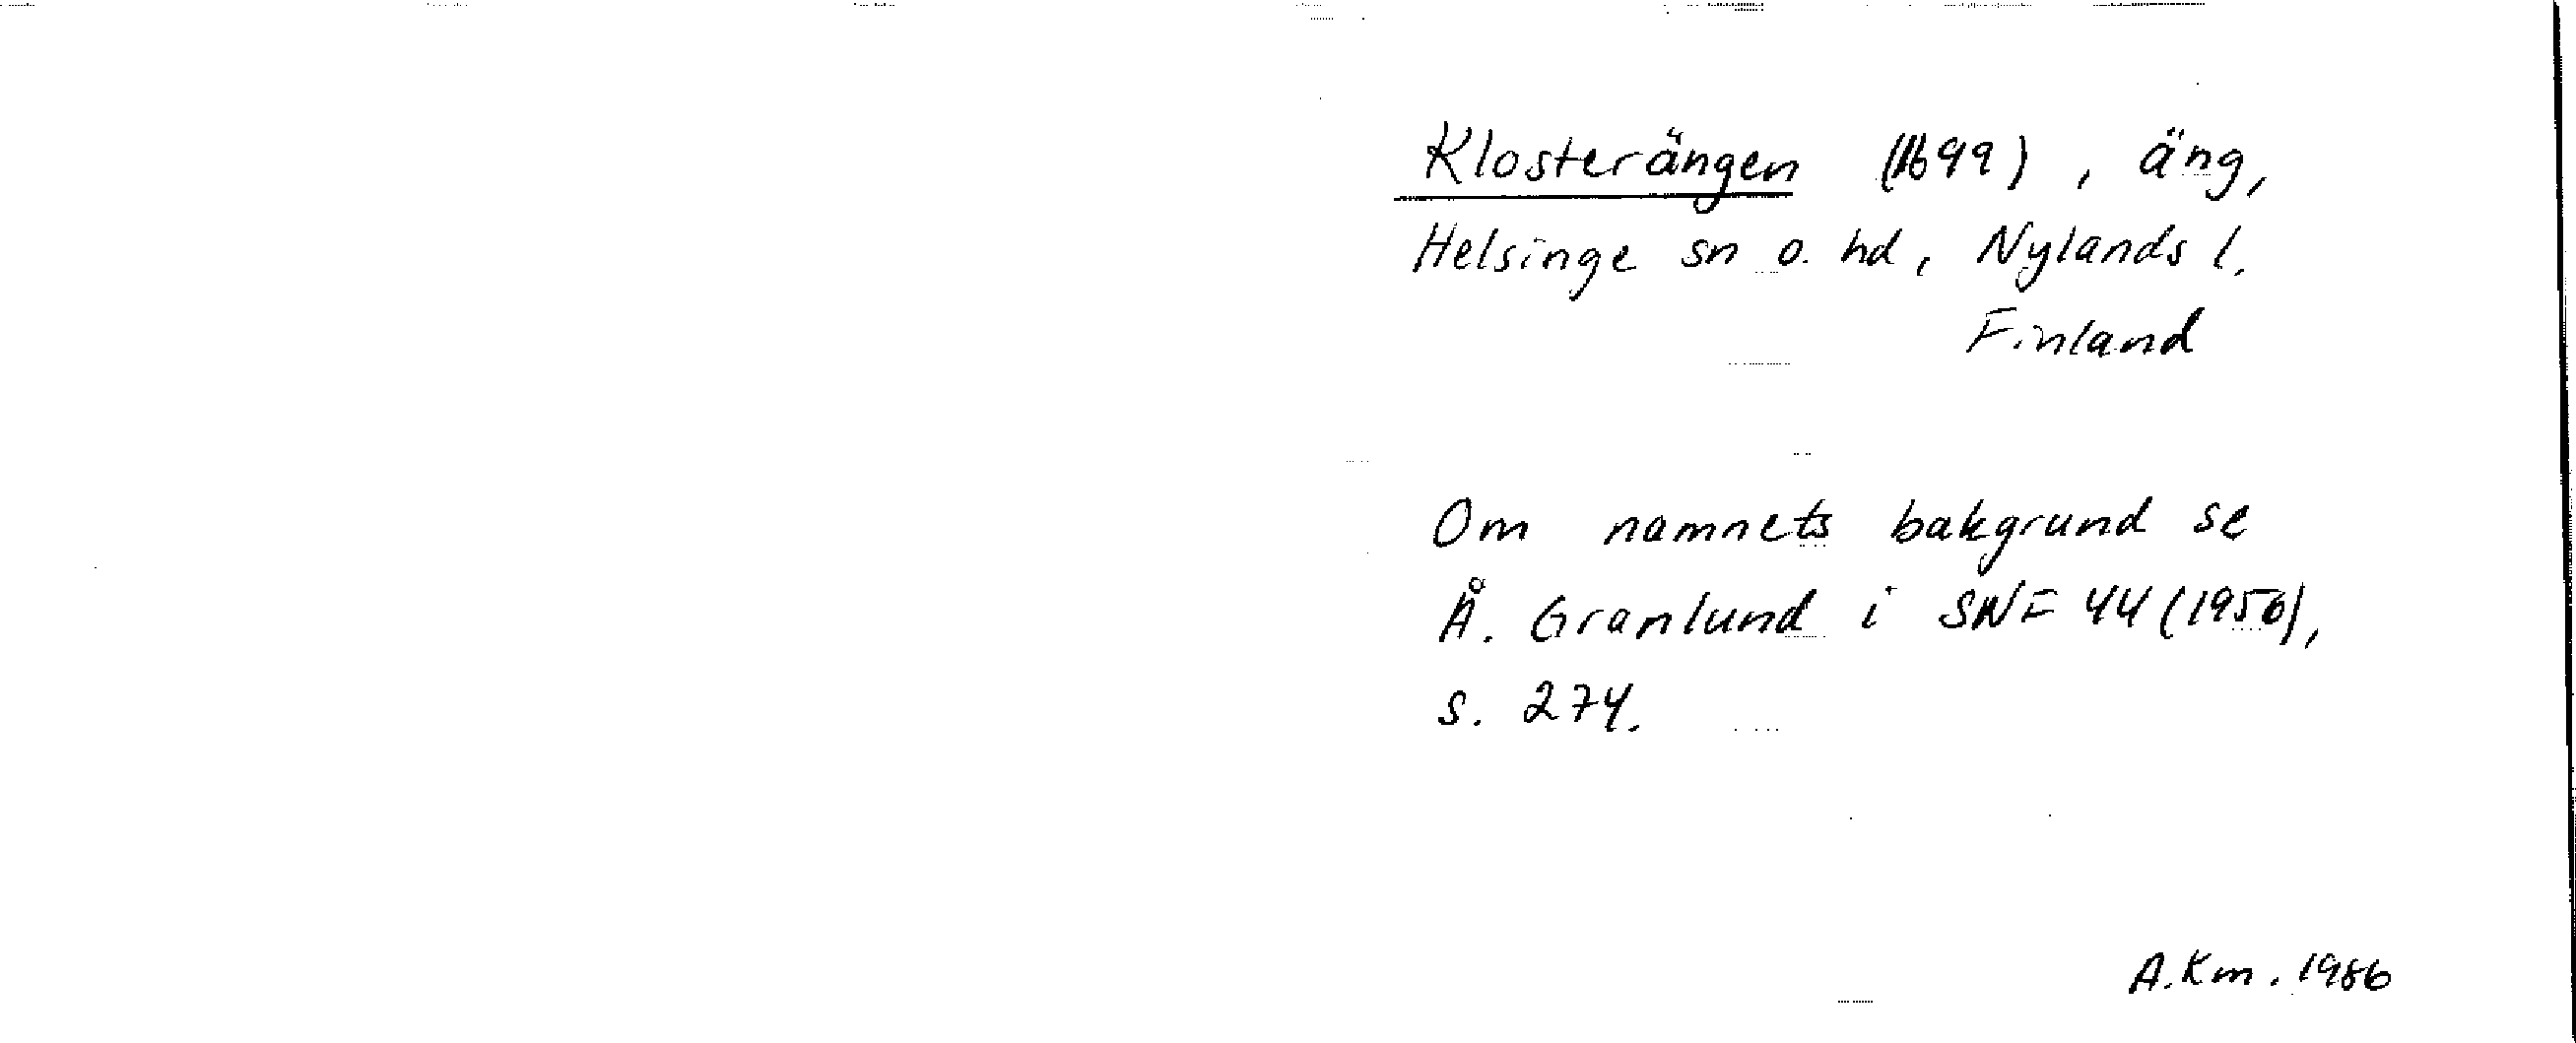 Klosterängen (1699), äng,
Helsinge sn o. hd, Nylands l.
Finland
Om namnets bakgrund se
Å. Granlund i SNF 44 (1956),
s. 274.
A.Km. 1986